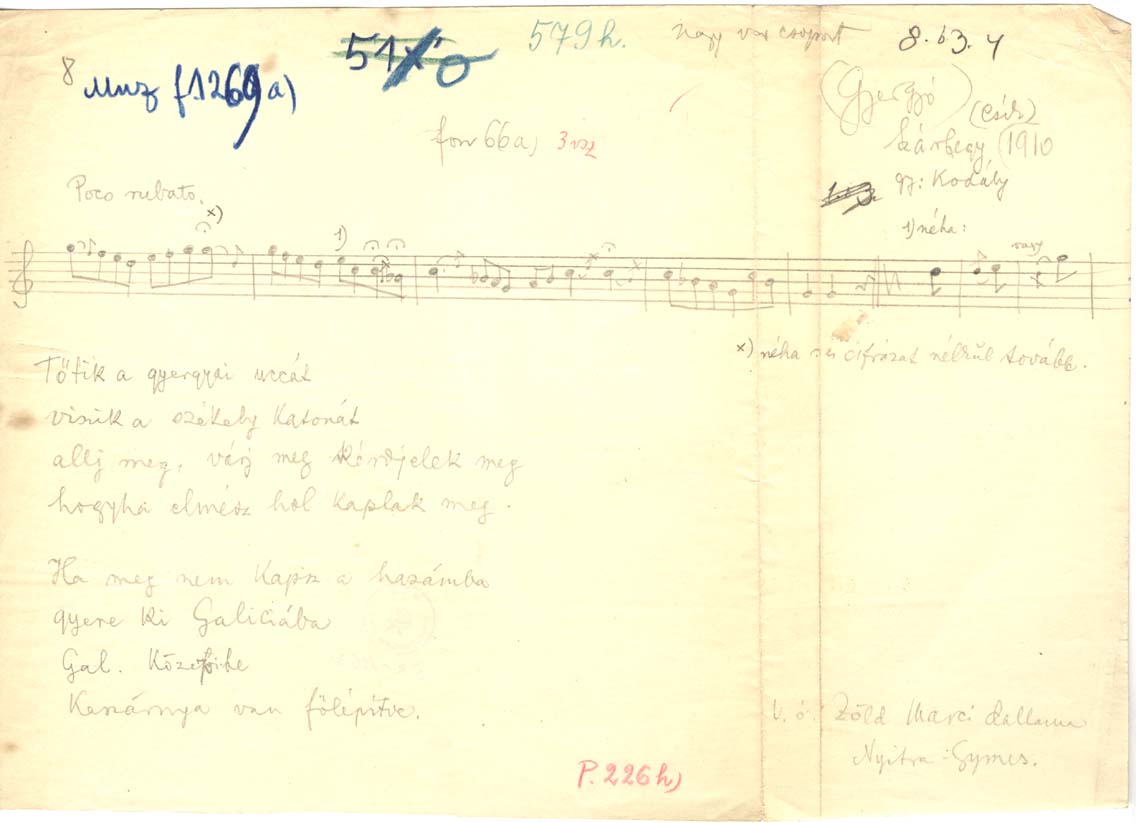 579h. Nagy var csoport 8.63.4
8 Muz f1269a)
(Gyergyó) (Csík)
Szárhegy, 1910
fon 66a) 3 vsz
gy: Kodály
Poco rubato.
1) néha:
x)
1)
vagy
x) néha cifrázat nélkül tovább.
Tőtik a gyergyai uccát
viszik a székely katonát
allj meg, várj meg kérdjelek meg
hogyha elmész hol kaplak meg.
Ha meg nem kapsz a hazámba
gyere ki Galiciába
Gal. közepibe
Kaszárnya van fölépitve.
V. ö. Zöld Marci dallama
Nyitra-Gymes.
P. 226h)